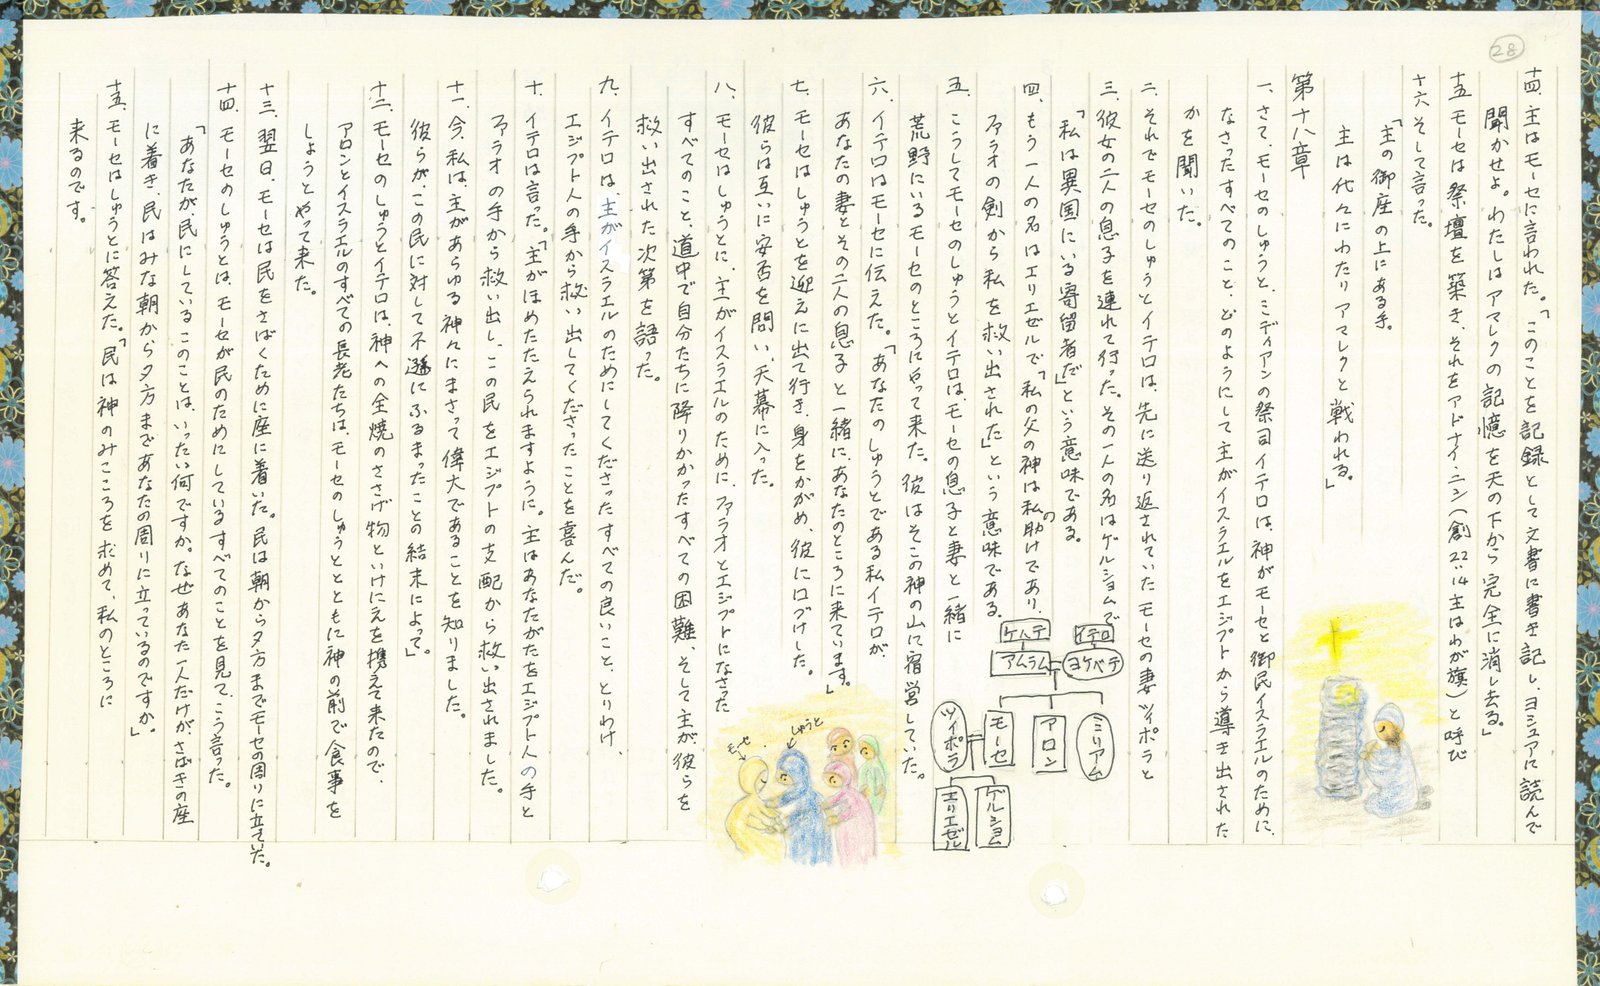 28
十四. 主はモーセに言われた。「このことを記録として文書に書き記し、ヨシュアに読んで
聞かせよ。わたしはアマレクの記憶を天の下から完全に消し去る。」
十五 モーセは祭壇を築き、それをアドナイ・ニシ(創22:14主はわが旗)と呼び
十六 そして言った。
「主の御座の上にある手。
主は代々にわたりアマレクと戦われる。」
第十八章
一. さて、モーセのしゅうと、ミディアンの祭司イテロは、神がモーセと御民イスラエルのために、
なさったすべてのこと、どのようにして主がイスラエルをエジプトから導き出された
かを聞いた。
二. それでモーセのしゅうとイテロは、先に送り返されていたモーセの妻ツィポラと
三. 彼女の二人の息子を連れて行った。その一人の名はゲルショムで
「私は異国にいる寄留者だ」という意味である。
四. もう一人の名はエリエゼルで「私の父の神は私の助けであり、
ファラオの剣から私を救い出された」という意味である。
五. こうしてモーセのしゅうとイテロはモーセの息子と妻と一緒に
荒野にいるモーセのところにやって来た。彼はそこの神の山に宿営していた。
六. イテロはモーセに伝えた。「あなたのしゅうとである私イテロが、
あなたの妻とその二人の息子と一緒に、あなたのところに来ています。」
七. モーセはしゅうとを迎えに出て行き、身をかがめ、彼に口づけした。
彼らは互いに安否を問い、天幕に入った。
八. モーセはしゅうとに、主がイスラエルのために、ファラオとエジプトになさった
すべてのこと、道中で自分たちに降りかかったすべての困難、そして主が彼らを
救い出された次第を語った。
九. イテロは、主がイスラエルのためにしてくださったすべての良いこと、とりわけ、
エジプト人の手から救い出してくださったことを喜んだ。
十. イテロは言った。「主がほめたたえられますように。主はあなたがたをエジプト人の手と
ファラオの手から救い出し、この民をエジプトの支配から救い出されました。
十一. 今、私は、主があらゆる神々にまさって偉大であることを知りました。
彼らが、この民に対して不遜にふるまったことの結末によって。」
十二. モーセのしゅうとイテロは、神への全焼のささげ物といけにえを携えて来たので、
アロンとイスラエルのすべての長老たちは、モーセのしゅうととともに神の前で食事を
しようとやって来た。
十三. 翌日、モーセは民をさばくために座に着いた。民は朝から夕方までモーセの周りに立ていた。
十四. モーセのしゅうとは、モーセが民のためにしているすべてのことを見て、こう言った。
「あなたが、民にしているこのことは、いったい何ですか。なぜあなた一人だけがさばきの座
に着き、民はみな朝から夕方まであなたの周りに立っているのですか。」
十五. モーセはしゅうとに答えた。「民は神のみこころを求めて、私のところに
来るのです。
イテロ
ケハテ
ヨケベテ
アムラム
ミリアム
アロン
モーセ
ツィポラ
ゲルショム
エリエゼル
しゅうと
モーセ